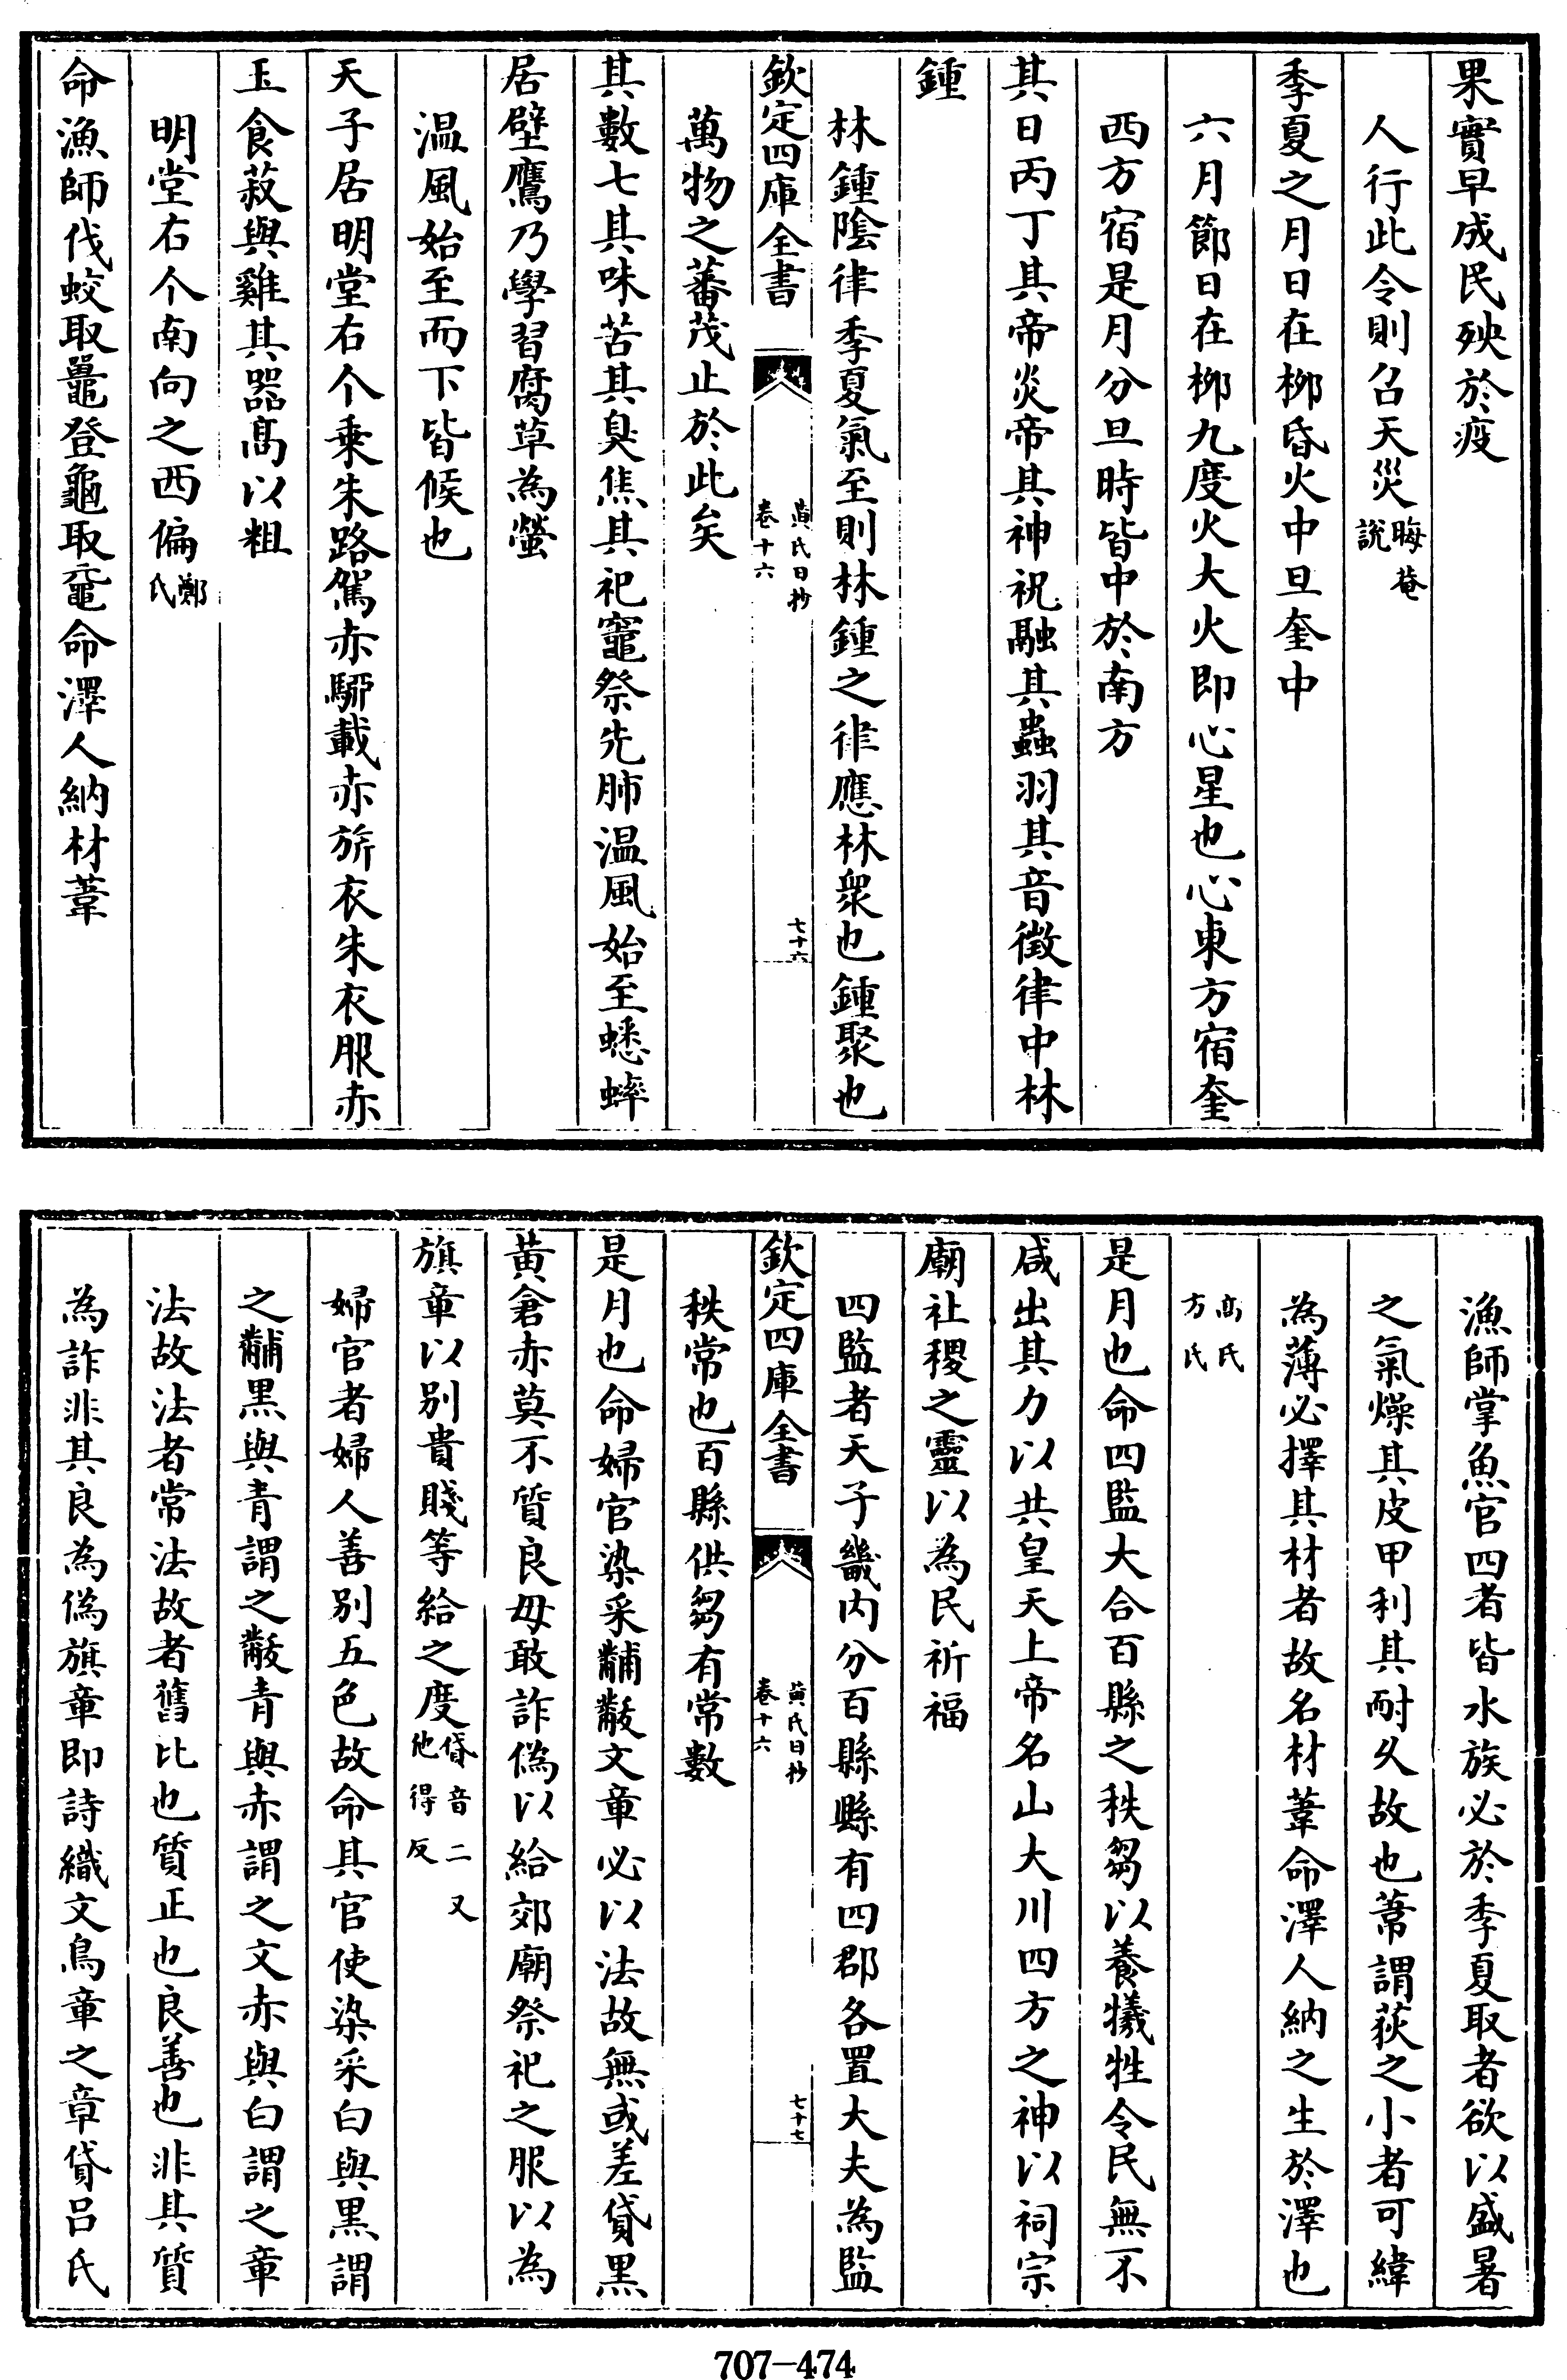 果實早成民殃於疫
人行此令則召天災晦菴說
季夏之月日在柳昏火中旦奎中
六月節日在柳九度火大火即心星也心東方宿奎
西方宿是月分旦時皆中於南方
其日丙丁其帝炎帝其神祝融其蟲羽其音徵律中林
鍾
林鍾陰律季夏氣至則林鍾之律應林衆也鍾聚也
欽定四庫全書
黃氏日抄
卷十六
七十六
萬物之蕃茂止於此矣
其數七其味苦其臭焦其祀竈祭先肺温風始至蟋蟀
居壁鷹乃學習腐草為螢
温風始至而下皆候也
天子居明堂右个乘朱路駕赤駵載赤旂衣朱衣服赤
玉食菽與雞其器髙以粗
明堂右个南向之西偏鄭氏
命漁師伐蛟取鼉登龜取黿命澤人納材葦
漁師掌魚官四者皆水族必於季夏取者欲以盛暑
之氣燥其皮甲利其耐久故也葦謂荻之小者可緯
為薄必擇其材者故名材葦命澤人納之生於澤也
髙氏
方氏
是月也命四監大合百縣之秩芻以養犧牲令民無不
咸出其力以共皇天上帝名山大川四方之神以祠宗
廟社稷之靈以為民祈福
四監者天子畿内分百縣縣有四郡各置大夫為監
欽定四庫全書
黃氏日抄
卷十六
七十七
秩常也百縣供芻有常數
是月也命婦官染采黼黻文章必以法故無或差貸黑
黃倉赤莫不質良毋敢詐偽以給郊廟祭祀之服以為
旗章以别貴賤等給之度貸音二又他得反
婦官者婦人善别五色故命其官使染采白與黑謂
之黼黑與青謂之黻青與赤謂之文赤與白謂之章
法故法者常法故者舊比也質正也良善也非其質
為詐非其良為偽旗章即詩織文鳥章之章貸吕氏
707-474